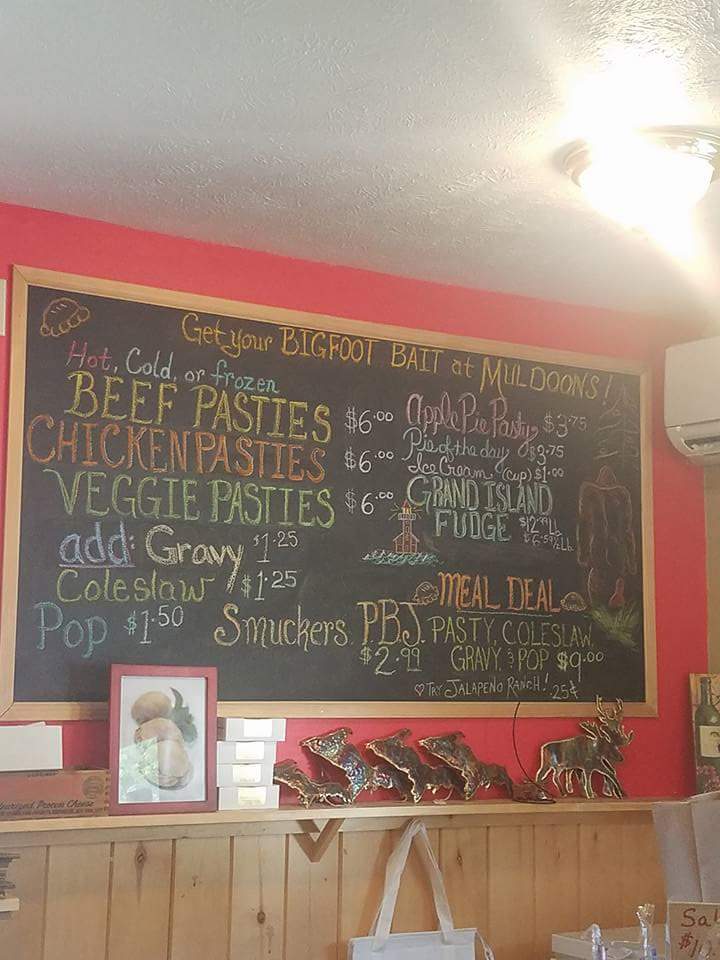 Get your BIGFOOT BAIT at MULDOONS!
Hot, Cold, or frozen
BEEF PASTIES $6.00
CHICKEN PASTIES $6.00
VEGGIE PASTIES $6.00
add: Gravy $1.25
Coleslaw $1.25
Pop $1.50
Smuckers PBJ
$2.99
Apple Pie Pasty $3.75
Pie of the day $3.75
Ice Cream (cup) $1.00
GRAND ISLAND
FUDGE $12.99 Lb.
$6.59 ½ Lb.
MEAL DEAL
PASTY, COLESLAW,
GRAVY, & POP $9.00
♡ TRY JALAPENO RANCH! .25¢